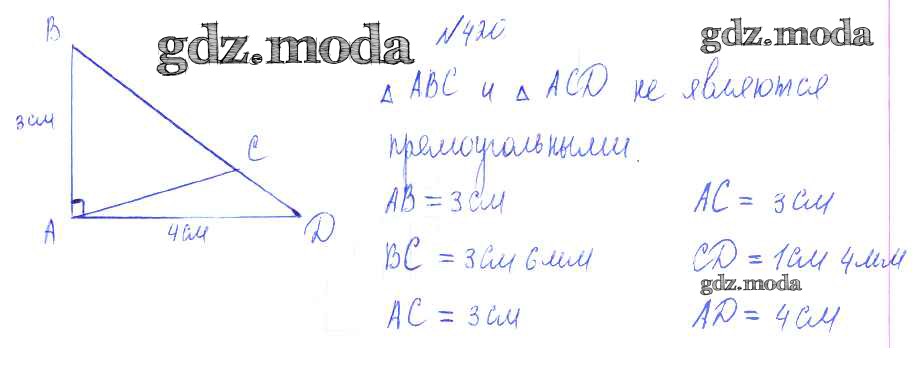 gdz.moda
gdz.moda
№420
B
3см
A
C
4см
D
△ ABC и △ ACD не являются
прямоугольными.
AB = 3см AC = 3см
BC = 3см 6мм CD = 1см 4мм
gdz.moda
AC = 3см AD = 4см